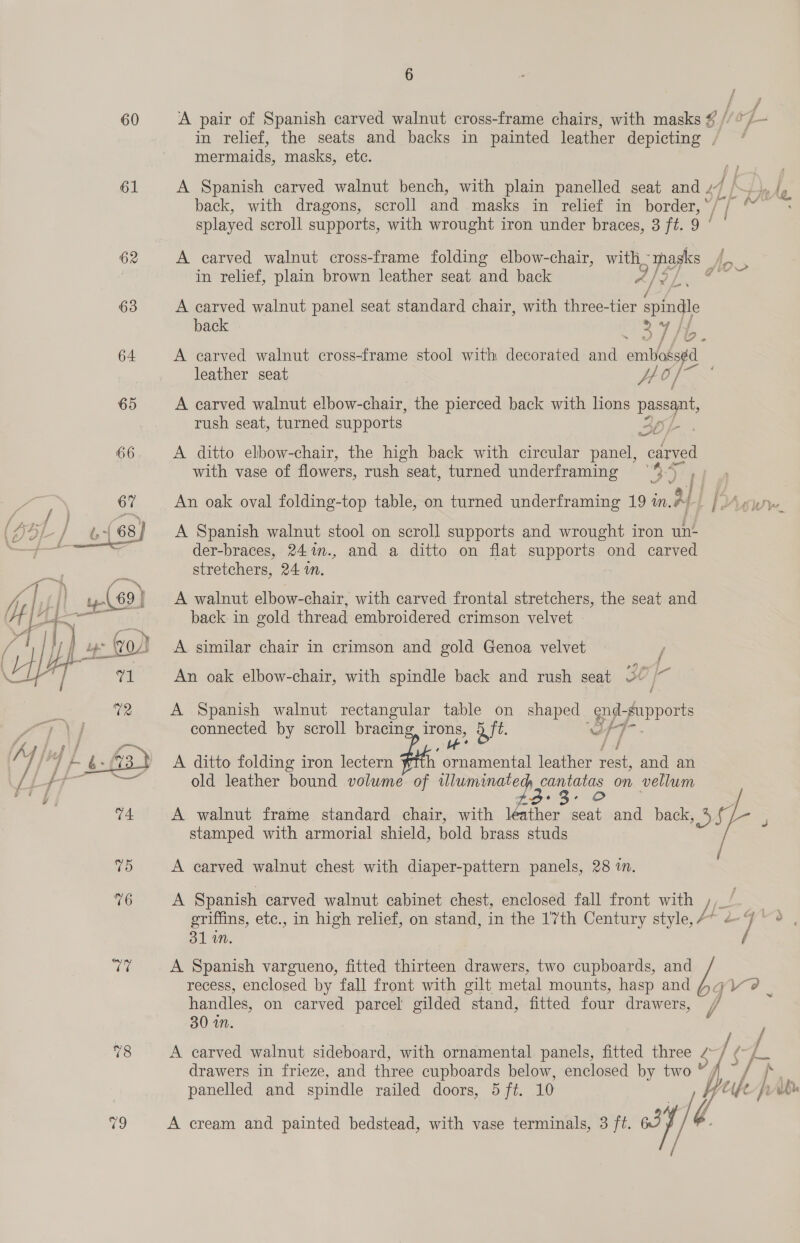 6
60 A pair of Spanish carved walnut cross-frame chairs, with masks
in relief, the seats and backs in painted leather depicting
mermaids, masks, etc.
61 A Spanish carved walnut bench, with plain panelled seat and
back, with dragons, scroll and masks in relief in border,
splayed scroll supports, with wrought iron under braces, 3 ft. 9
62 A carved walnut cross-frame folding elbow-chair, with masks
in relief, plain brown leather seat and back
63 A carved walnut panel seat standard chair, with three-tier spindle
back 37/6.
64 A carved walnut cross-frame stool with decorated and embossed
leather seat 40/-
65 A carved walnut elbow-chair, the pierced back with lions passant,
rush seat, turned supports 30/-
66 A ditto elbow-chair, the high back with circular panel, carved
with vase of flowers, rush seat, turned underframing
67 An oak oval folding-top table, on turned underframing 19 in.
68 A Spanish walnut stool on scroll supports and wrought iron un-
der-braces, 24 in., and a ditto on flat supports ond carved
stretchers, 24 in.
69 A walnut elbow-chair, with carved frontal stretchers, the seat and
back in gold thread embroidered crimson velvet
70 A similar chair in crimson and gold Genoa velvet
71 An oak elbow-chair, with spindle back and rush seat 30/-
72 A Spanish walnut rectangular table on shaped end-supports
connected by scroll bracing irons, 5 ft.
73 A ditto folding iron lectern with ornamental leather rest, and an
old leather bound volume of illuminated cantatas on vellum
£3. 3. 0
74 A walnut frame standard chair, with leather seat and back,
stamped with armorial shield, bold brass studs
75 A carved walnut chest with diaper-pattern panels, 28 in.
76 A Spanish carved walnut cabinet chest, enclosed fall front with
griffins, etc., in high relief, on stand, in the 17th Century style,
31 in.
77 A Spanish vargueno, fitted thirteen drawers, two cupboards, and
recess, enclosed by fall front with gilt metal mounts, hasp and
handles, on carved parcel gilded stand, fitted four drawers,
30 in.
78 A carved walnut sideboard, with ornamental panels, fitted three
drawers in frieze, and three cupboards below, enclosed by two
panelled and spindle railed doors, 5 ft. 10
79 A cream and painted bedstead, with vase terminals, 3 ft. 6